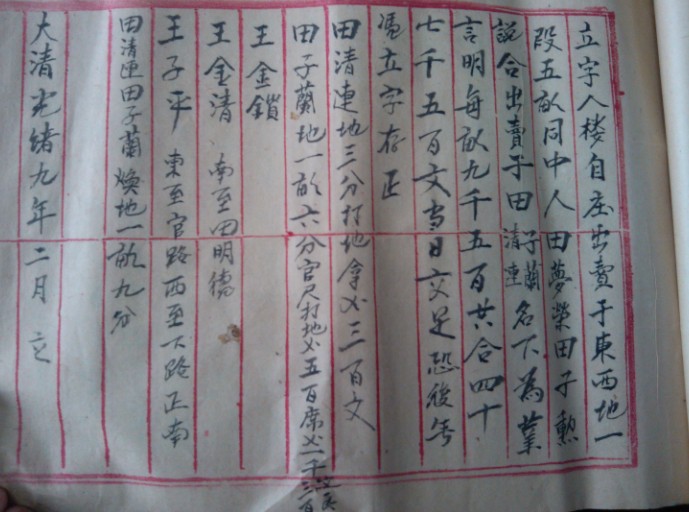 立字人楼自庄出賣于東西地一
段五畝同中人田夢榮田子勲
說合出賣于田子蘭清連名下為業
言明每畝九千五百共合四十
七千五百文当日交足恐後無
憑立字存正
田清連地三分打地拿 三百文
田子蘭地一畝六分官尺打地 五百席 一千
王金鎖
王金清 南至田明德
王子平 東至官路西至下路正南
田清連田子蘭煥地一畝九分
大清光绪九年二月立